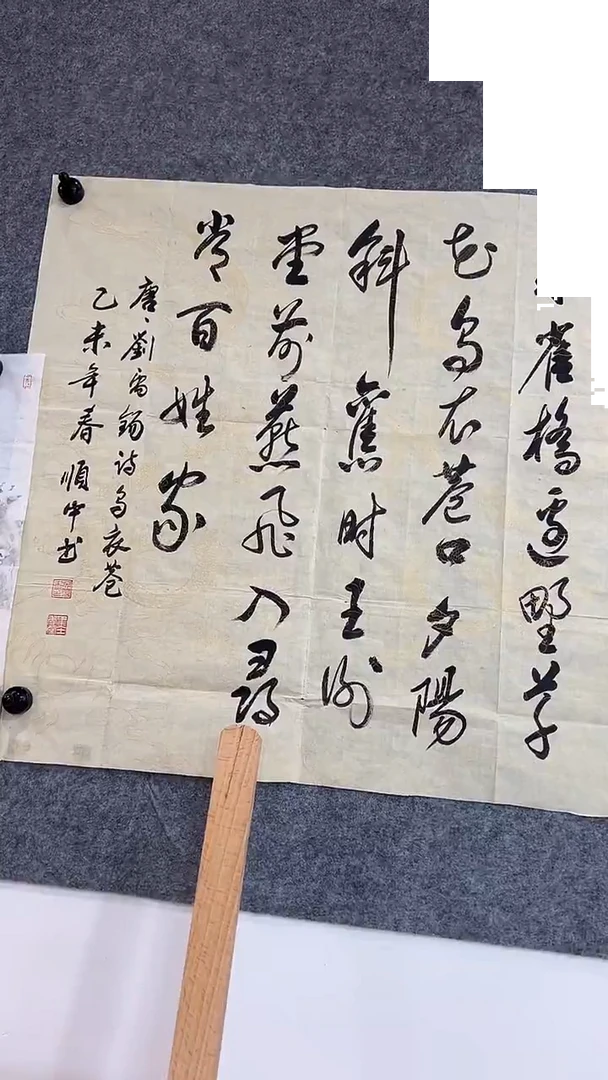 雀橋邊野草
花烏衣巷口夕陽
斜舊時王謝
堂前燕飛入尋
常百姓家
唐劉禹錫詩烏衣巷
乙未年春順中書